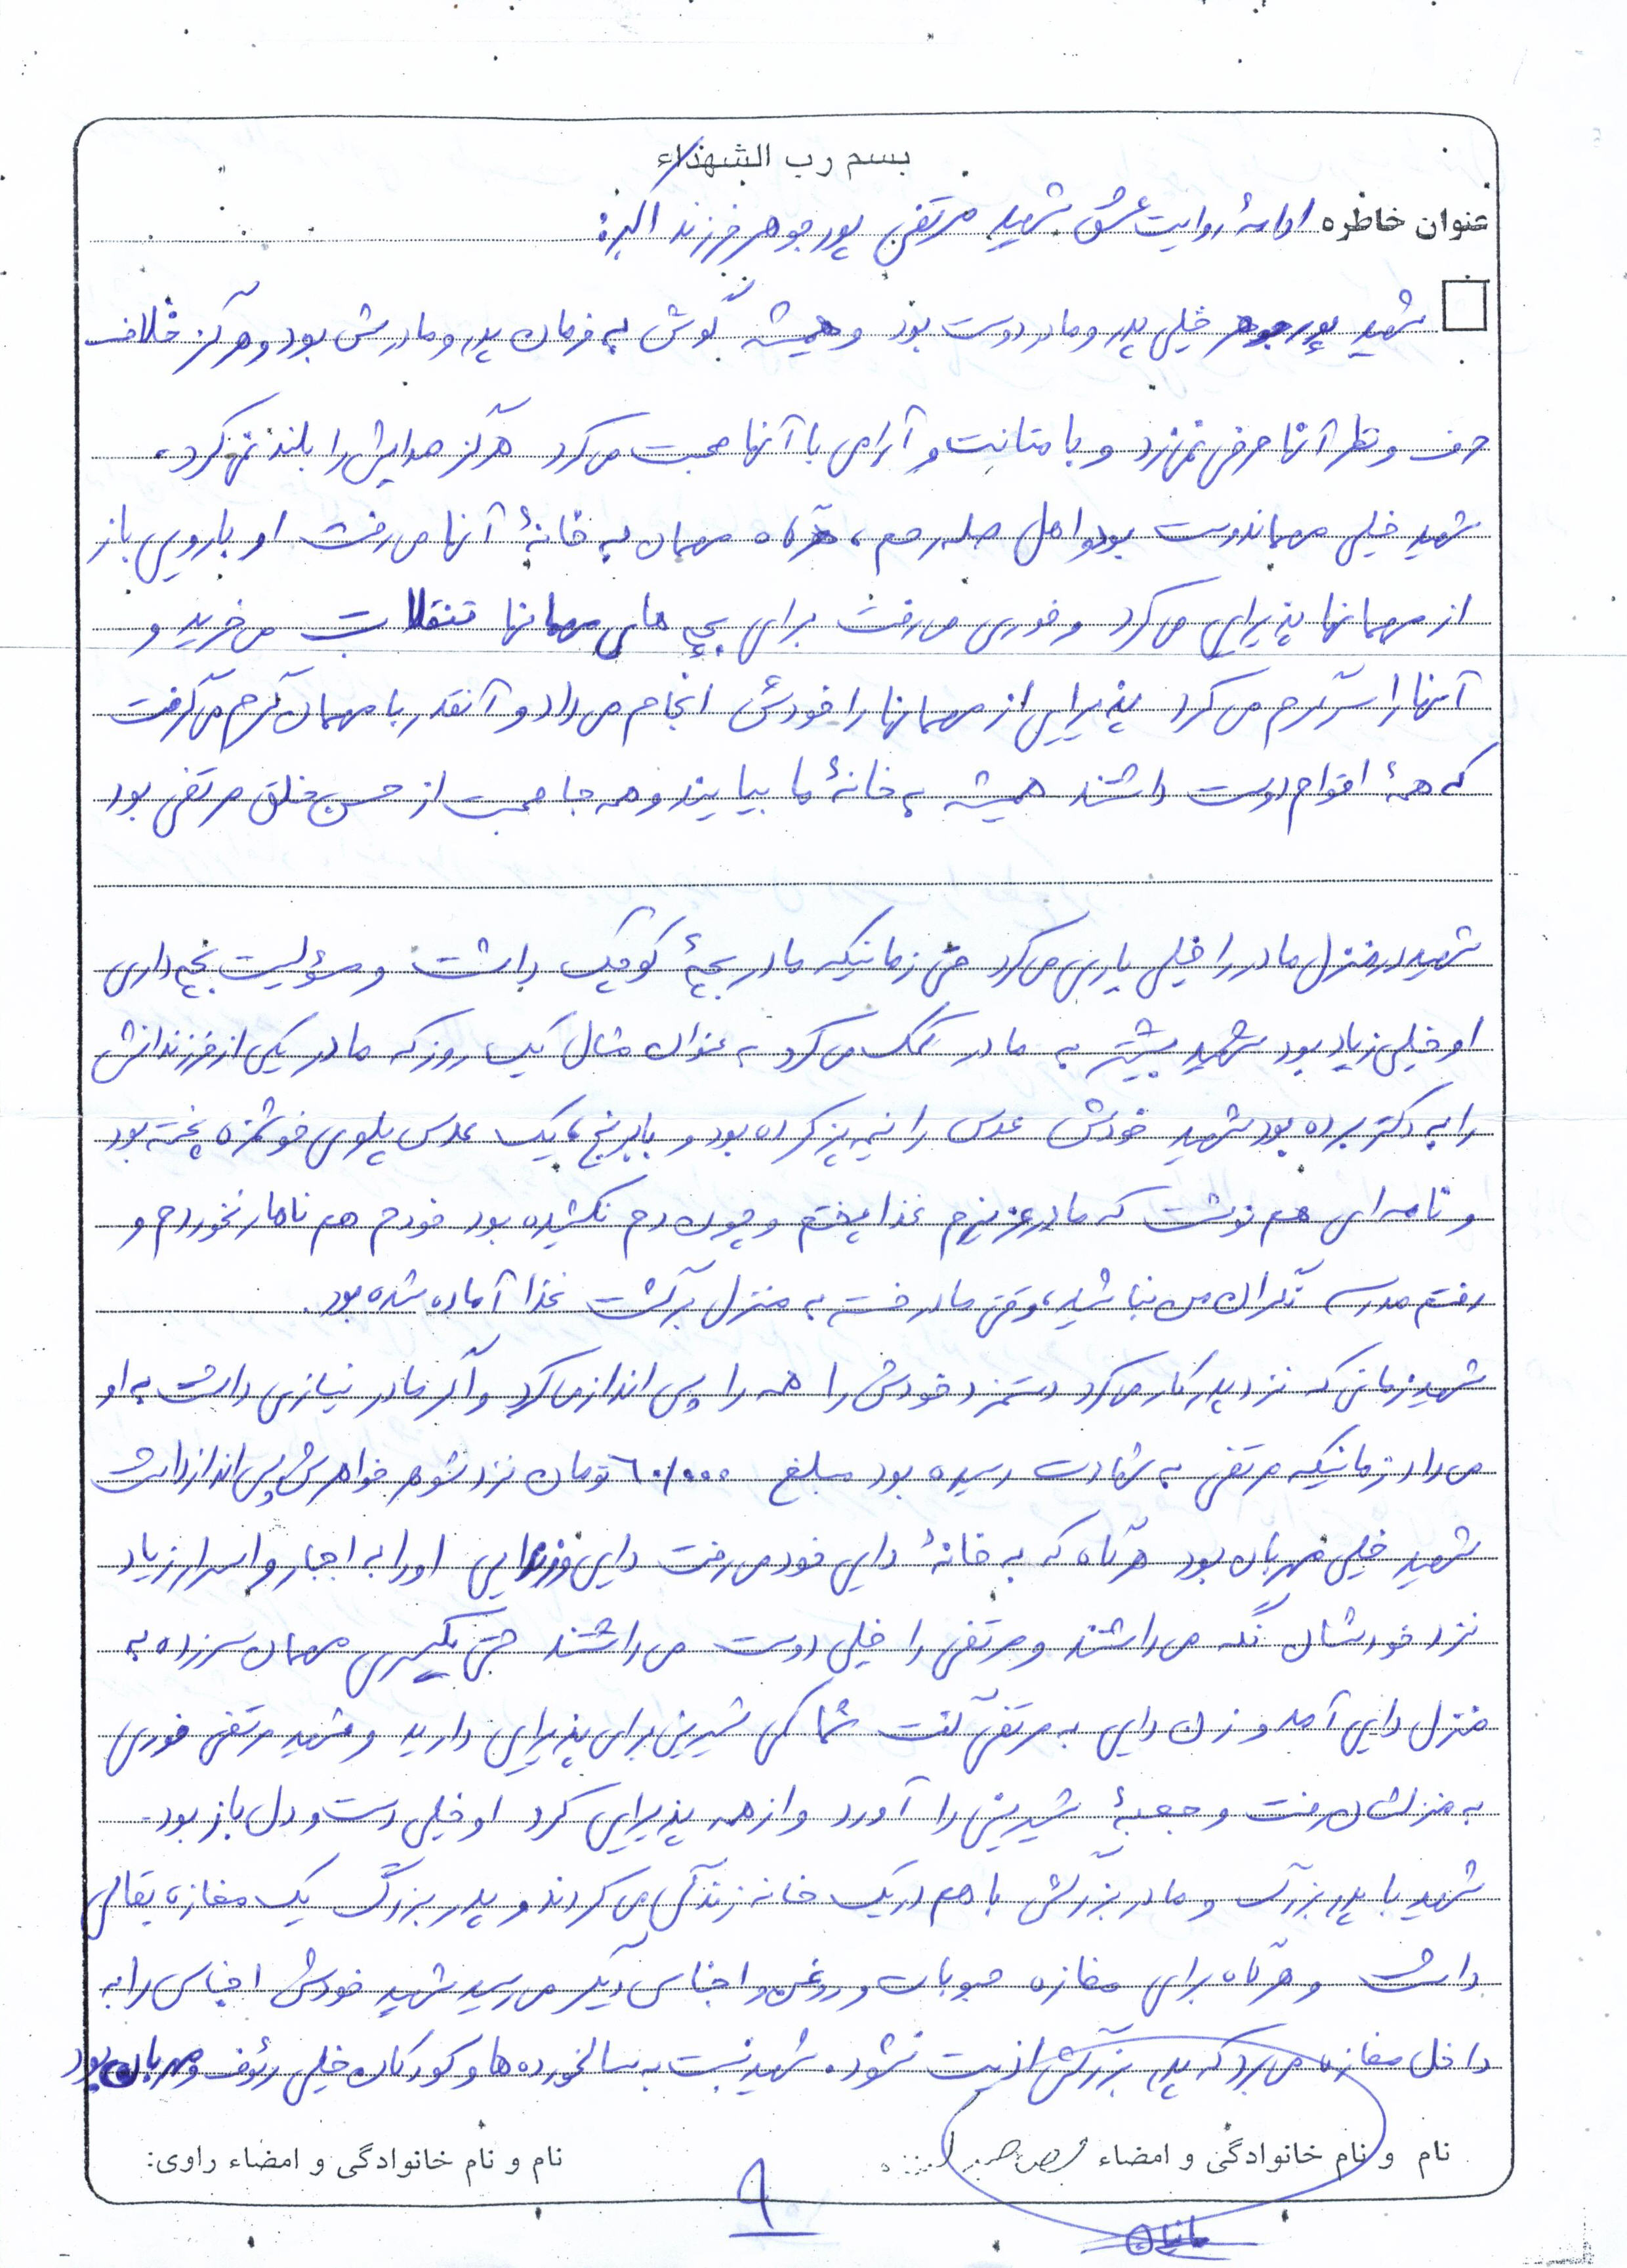 بسم رب الشهداء
عنوان خاطره ادامهٔ روایت عشق شهید مرتضی پورجوهر فرزند اکبر:
شهید پورجوهر خیلی پدر و مادر دوست بود و همیشه گوش به فرمان پدر و مادرش بود و هرگز خلاف
حرف و نظر آنها حرفی نمی‌زد و با متانت و آرامی با آنها صحبت می‌کرد هرگز صدایش را بلند نمی‌کرد.
شهید خیلی مهماندوست بود و اهل صله رحم، هرگاه مهمان به خانهٔ آنها می‌رفت او با رویی باز
از مهمانها پذیرایی می‌کرد و فوری می‌رفت برای بچه های مهمانها تنقلات می‌خرید و
آنها را سرگرم می‌کرد پذیرایی از مهمانها را خودش انجام می‌داد و آنقدر با مهمان گرم می‌گرفت
که همهٔ اقوام دوست داشتند همیشه به خانهٔ ما بیایند و همه جا صحبت از حسن خلق مرتضی بود
شهید در منزل مادر را خیلی یاری می‌کرد حتی زمانیکه مادر بچهٔ کوچک داشت و مسؤلیت بچه داری
او خیلی زیاد بود شهید بیشتر به مادر کمک می‌کرد به عنوان مثال یک روز که مادر یکی از فرزندانش
را به دکتر برده بود شهید خودش عدس را نیم پز کرده بود و با برنج یک عدس پلوی خوشمزه پخته بود
و نامه ای هم نوشت که مادر عزیزم غذا پختم و چون دم نکشیده بود خودم هم ناهار نخوردم و
رفتم مدرسه نگران من نباشید، وقتی مادر خسته به منزل برگشت غذا آماده شده بود.
شهید زمانی که نزد پدر کار می‌کرد دستمزد خودش را همه را پس انداز می‌کرد و اگر مادر نیازی داشت به او
می‌داد زمانیکه مرتضی به شهادت رسیده بود مبلغ ۶۰/۰۰۰ تومان نزد شوهر خواهرش پس انداز داشت
شهید خیلی مهربان بود هرگاه که به خانهٔ دایی خود می‌رفت دایی و زندایی او را به اجبار و اسرار زیاد
نزد خودشان نگه می‌داشتند و مرتضی را خیلی دوست می‌داشتند حتی یکسری مهمان سرزده به
منزل دایی آمد و زن دایی به مرتضی گفت شما کمی شیرینی برای پذیرایی دارید و شهید مرتضی فوری
به منزلشان رفت و جعبهٔ شیرینی را آورد و از همه پذیرایی کرد او خیلی دست و دل باز بود.
شهید با پدر بزرگ و مادر بزرگش با هم در یک خانه زندگی می‌کردند و پدر بزرگ یک مغازه بقالی
داشت و هرگاه برای مغازه حبوبات و روغن و اجناس دیگر می‌رسید شهید خودش اجناس را به
داخل مغازه می‌برد که پدر بزرگش اذیت نشود. شهید نسبت به سالخورده ها و کودکان خیلی رئوف و مهربان بود
نام و نام خانوادگی و امضاء
نام و نام خانوادگی و امضاء راوی:
۹